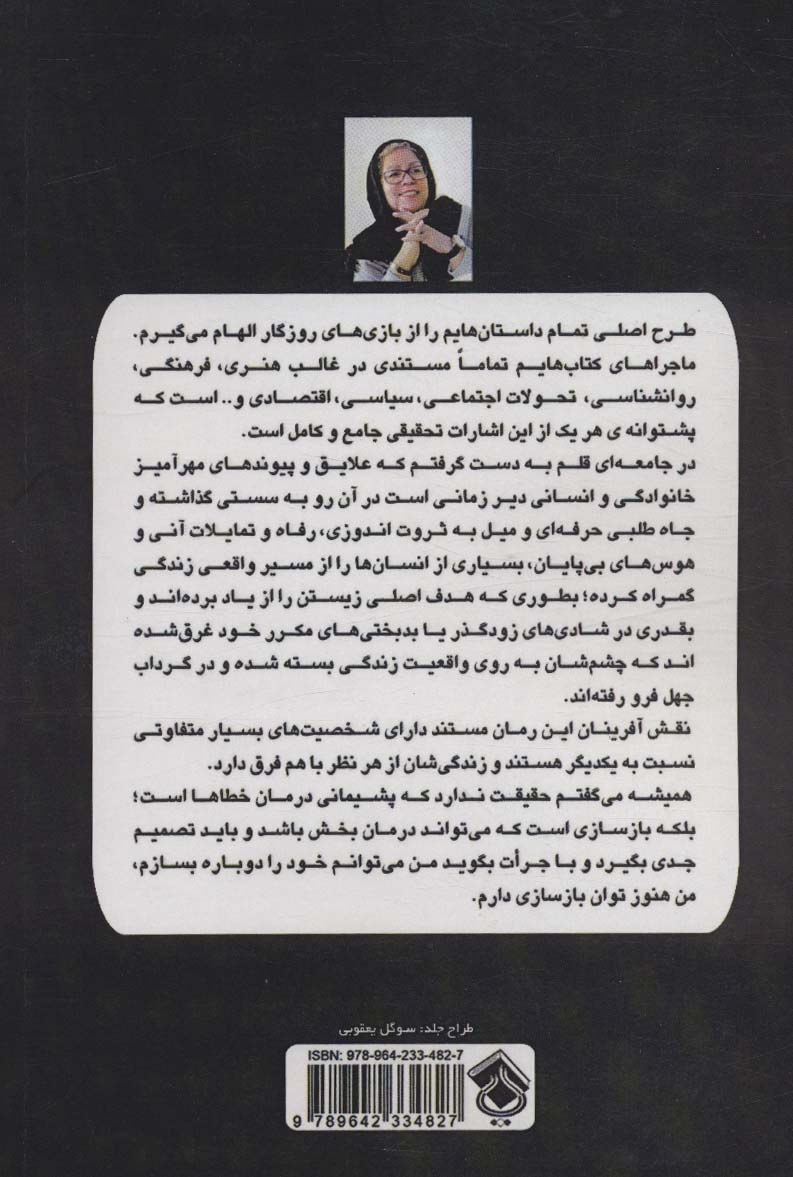 طرح اصلی تمام داستان‌هایم را از بازی‌های روزگار الهام می‌گیرم.
ماجراهای کتاب‌هایم تماماً مستندی در غالب هنری، فرهنگی،
روانشناسی، تحولات اجتماعی، سیاسی، اقتصادی و.. است که
پشتوانه ی هر یک از این اشارات تحقیقی جامع و کامل است.
در جامعه‌ای قلم به دست گرفتم که علایق و پیوندهای مهرآمیز
خانوادگی و انسانی دیر زمانی است در آن رو به سستی گذاشته و
جاه طلبی حرفه‌ای و میل به ثروت اندوزی، رفاه و تمایلات آنی و
هوس‌های بی‌پایان، بسیاری از انسان‌ها را از مسیر واقعی زندگی
گمراه کرده؛ بطوری که هدف اصلی زیستن را از یاد برده‌اند و
بقدری در شادی‌های زودگذر یا بدبختی‌های مکرر خود غرق‌شده
اند که چشم‌شان به روی واقعیت زندگی بسته شده و در گرداب
جهل فرو رفته‌اند.
نقش آفرینان این رمان مستند دارای شخصیت‌های بسیار متفاوتی
نسبت به یکدیگر هستند و زندگی‌شان از هر نظر با هم فرق دارد.
همیشه می‌گفتم حقیقت ندارد که پشیمانی درمان خطاها است؛
بلکه بازسازی است که می‌تواند درمان بخش باشد و باید تصمیم
جدی بگیرد و با جرأت بگوید من می‌توانم خود را دوباره بسازم،
من هنوز توان بازسازی دارم.
طراح جلد: سوگل یعقوبی
ISBN: 978-964-233-482-7
9 789642 334827